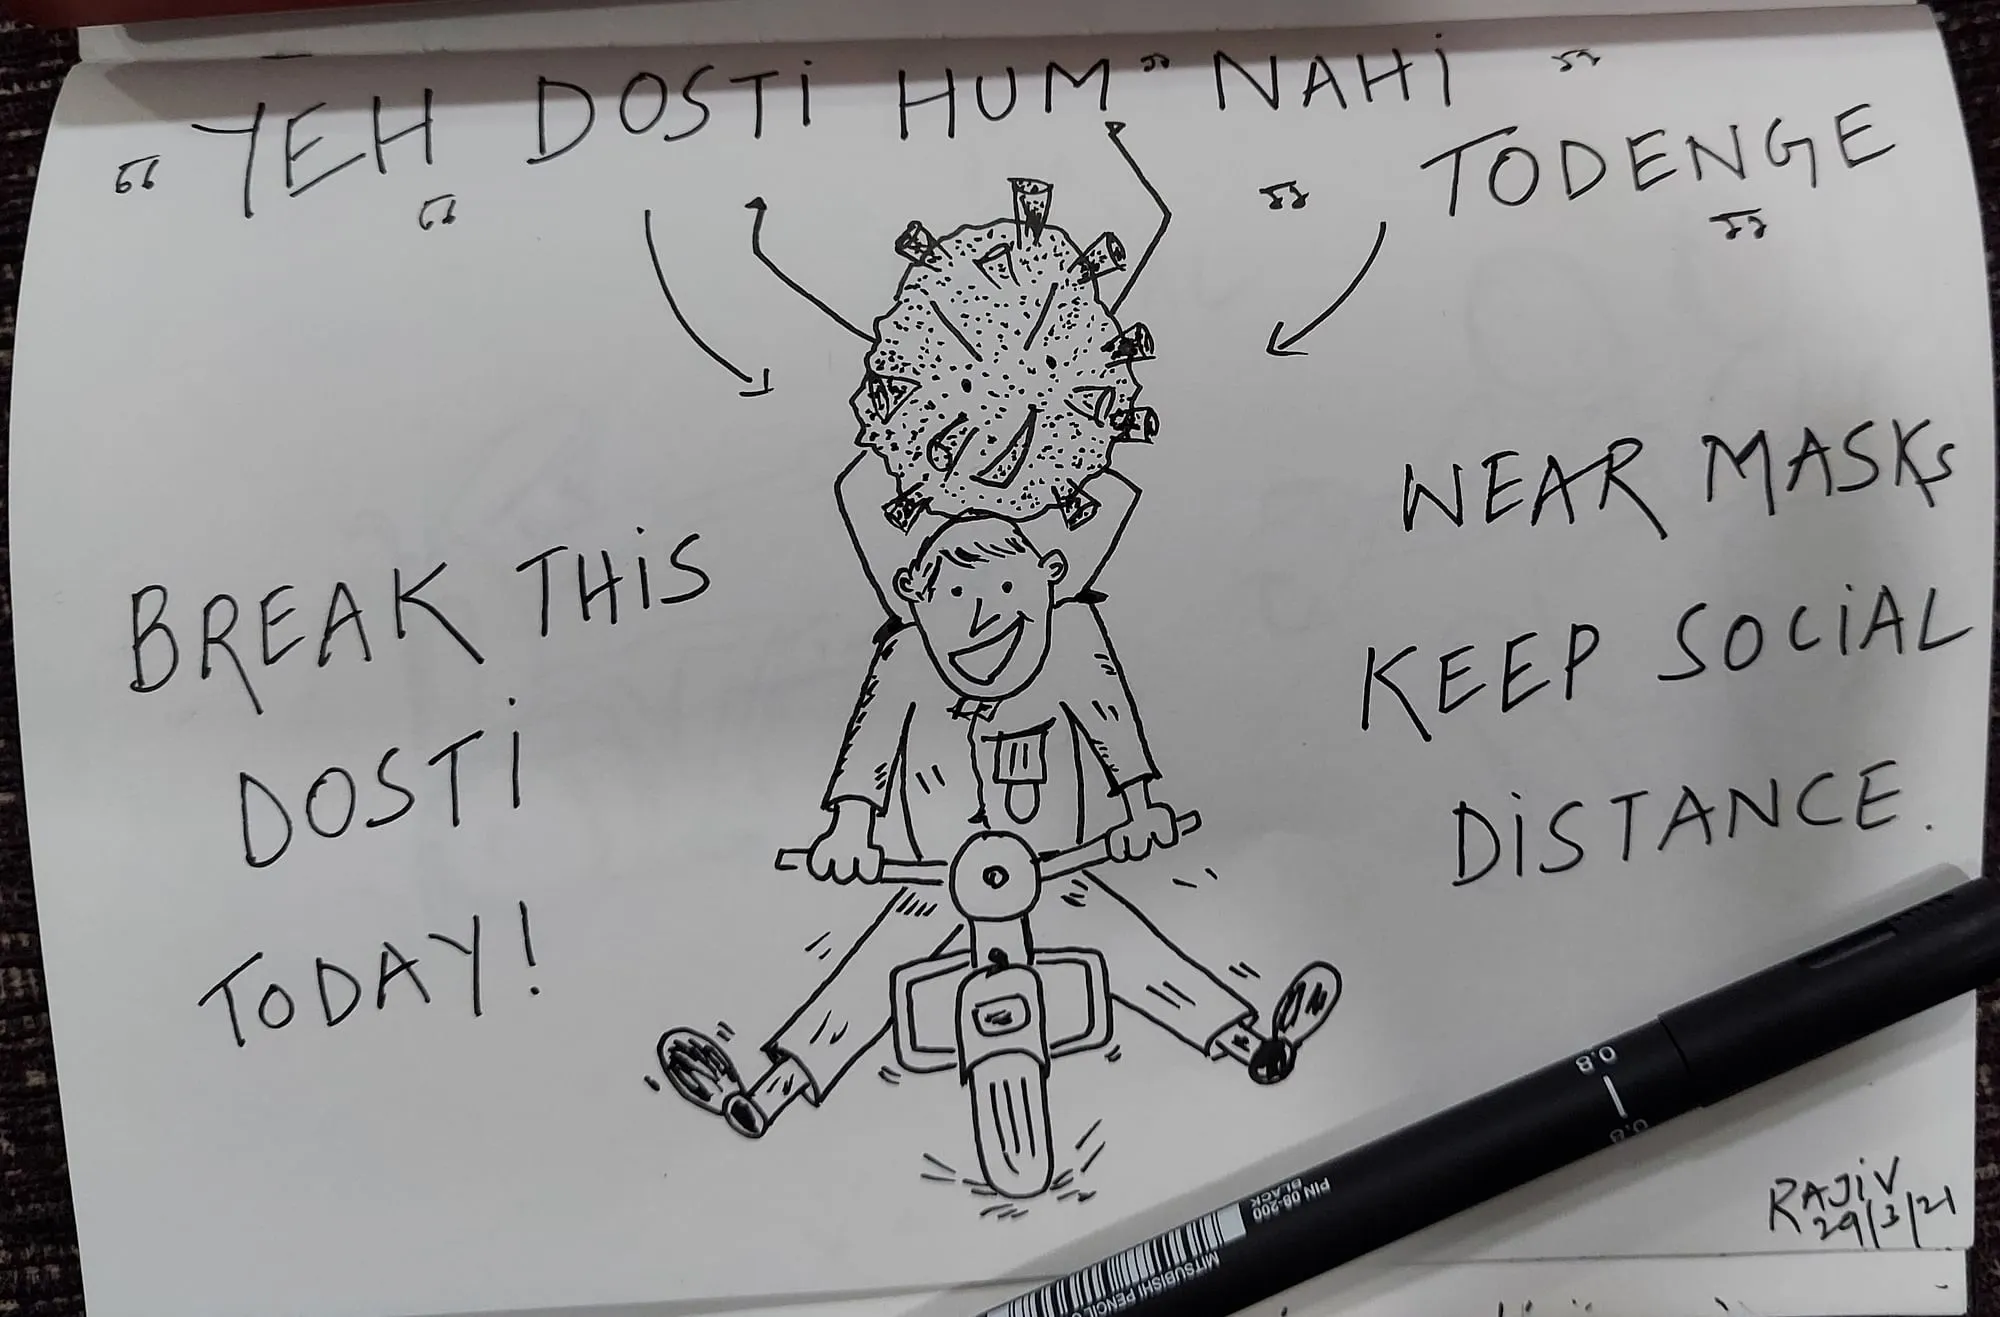 YEH DOSTi HUM NAHi
TODENGE
BREAK THiS
DOSTi
TODAY!
WEAR MASKS
KEEP SOCiAL
DiSTANCE.
0.8
0.8
PIN 08-200
BLACK
MITSUBISHI PENCIL
RAJiV
29/3/21